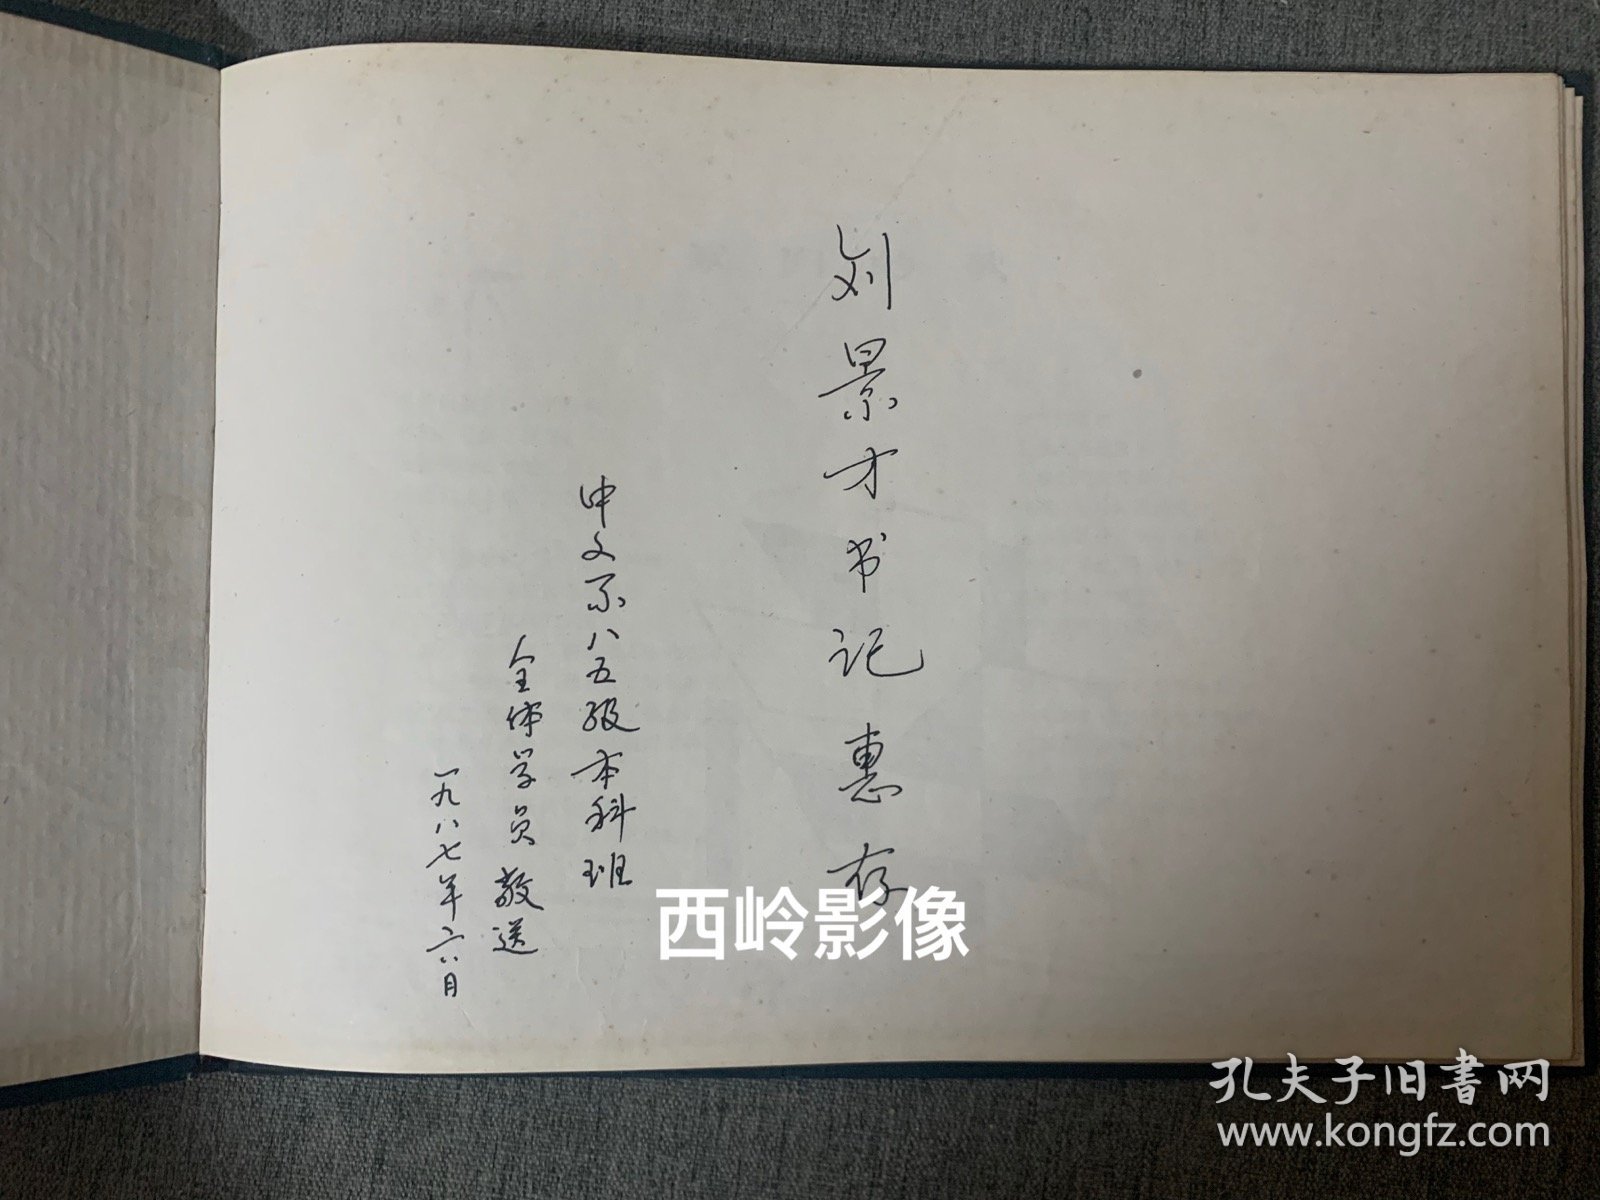 刘景才书记惠存
中文系八五级本科班
全体学员敬送
一九八七年六月
西岭影像
孔夫子旧书网
www.kongfz.com